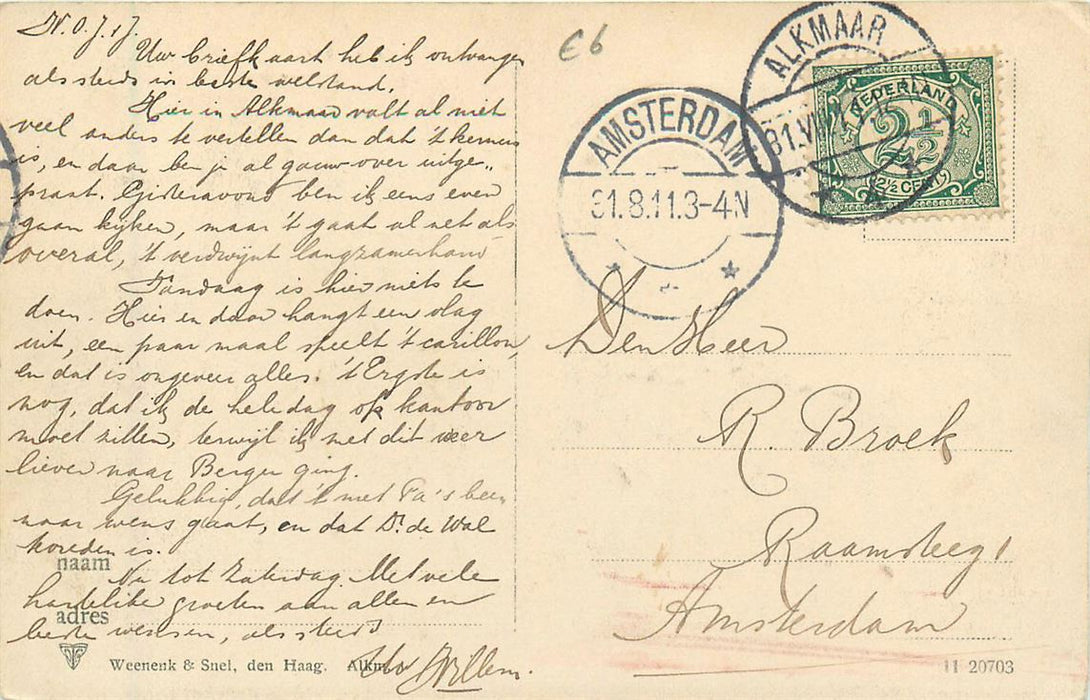 W.O.J.;J.
Uw briefkaart heb ik ontvangen
als steeds in beste welstand.
Hier in Alkmaar valt al niet
veel anders te vertellen dan dat 't kermis
is, en daar ben je al gauw over uitge-
praat. Gisteravond ben ik eens even
gaan kijken, maar 't gaat al net als
overal, 't verdwijnt langzamerhand
Vandaag is hier niets te
doen. Hier en daar hangt een vlag
uit, een paar maal speelt 't carillon,
en dat is ongeveer alles. 't Ergste is
nog, dat ik de hele dag op kantoor
moet zitten, terwijl ik met dit weer
liever naar Bergen ging.
Gelukkig, dat 't met Pa's been
naar wens gaat, en dat Dr. de Wal
tevreden is.
naam
Nu tot Zaterdag. Met vele
hartelijke groeten aan allen en
adres
beste wensen, als steeds
Uw Willem.
Weenenk & Snel, den Haag. Alkm.
€6
ALKMAAR
31.VIII
AMSTERDAM
31.8.11.3-4N
NEDERLAND
2½
(2½ CENT)
Den Heer
R. Broek
Raamsteeg 1
Amsterdam
11 20703